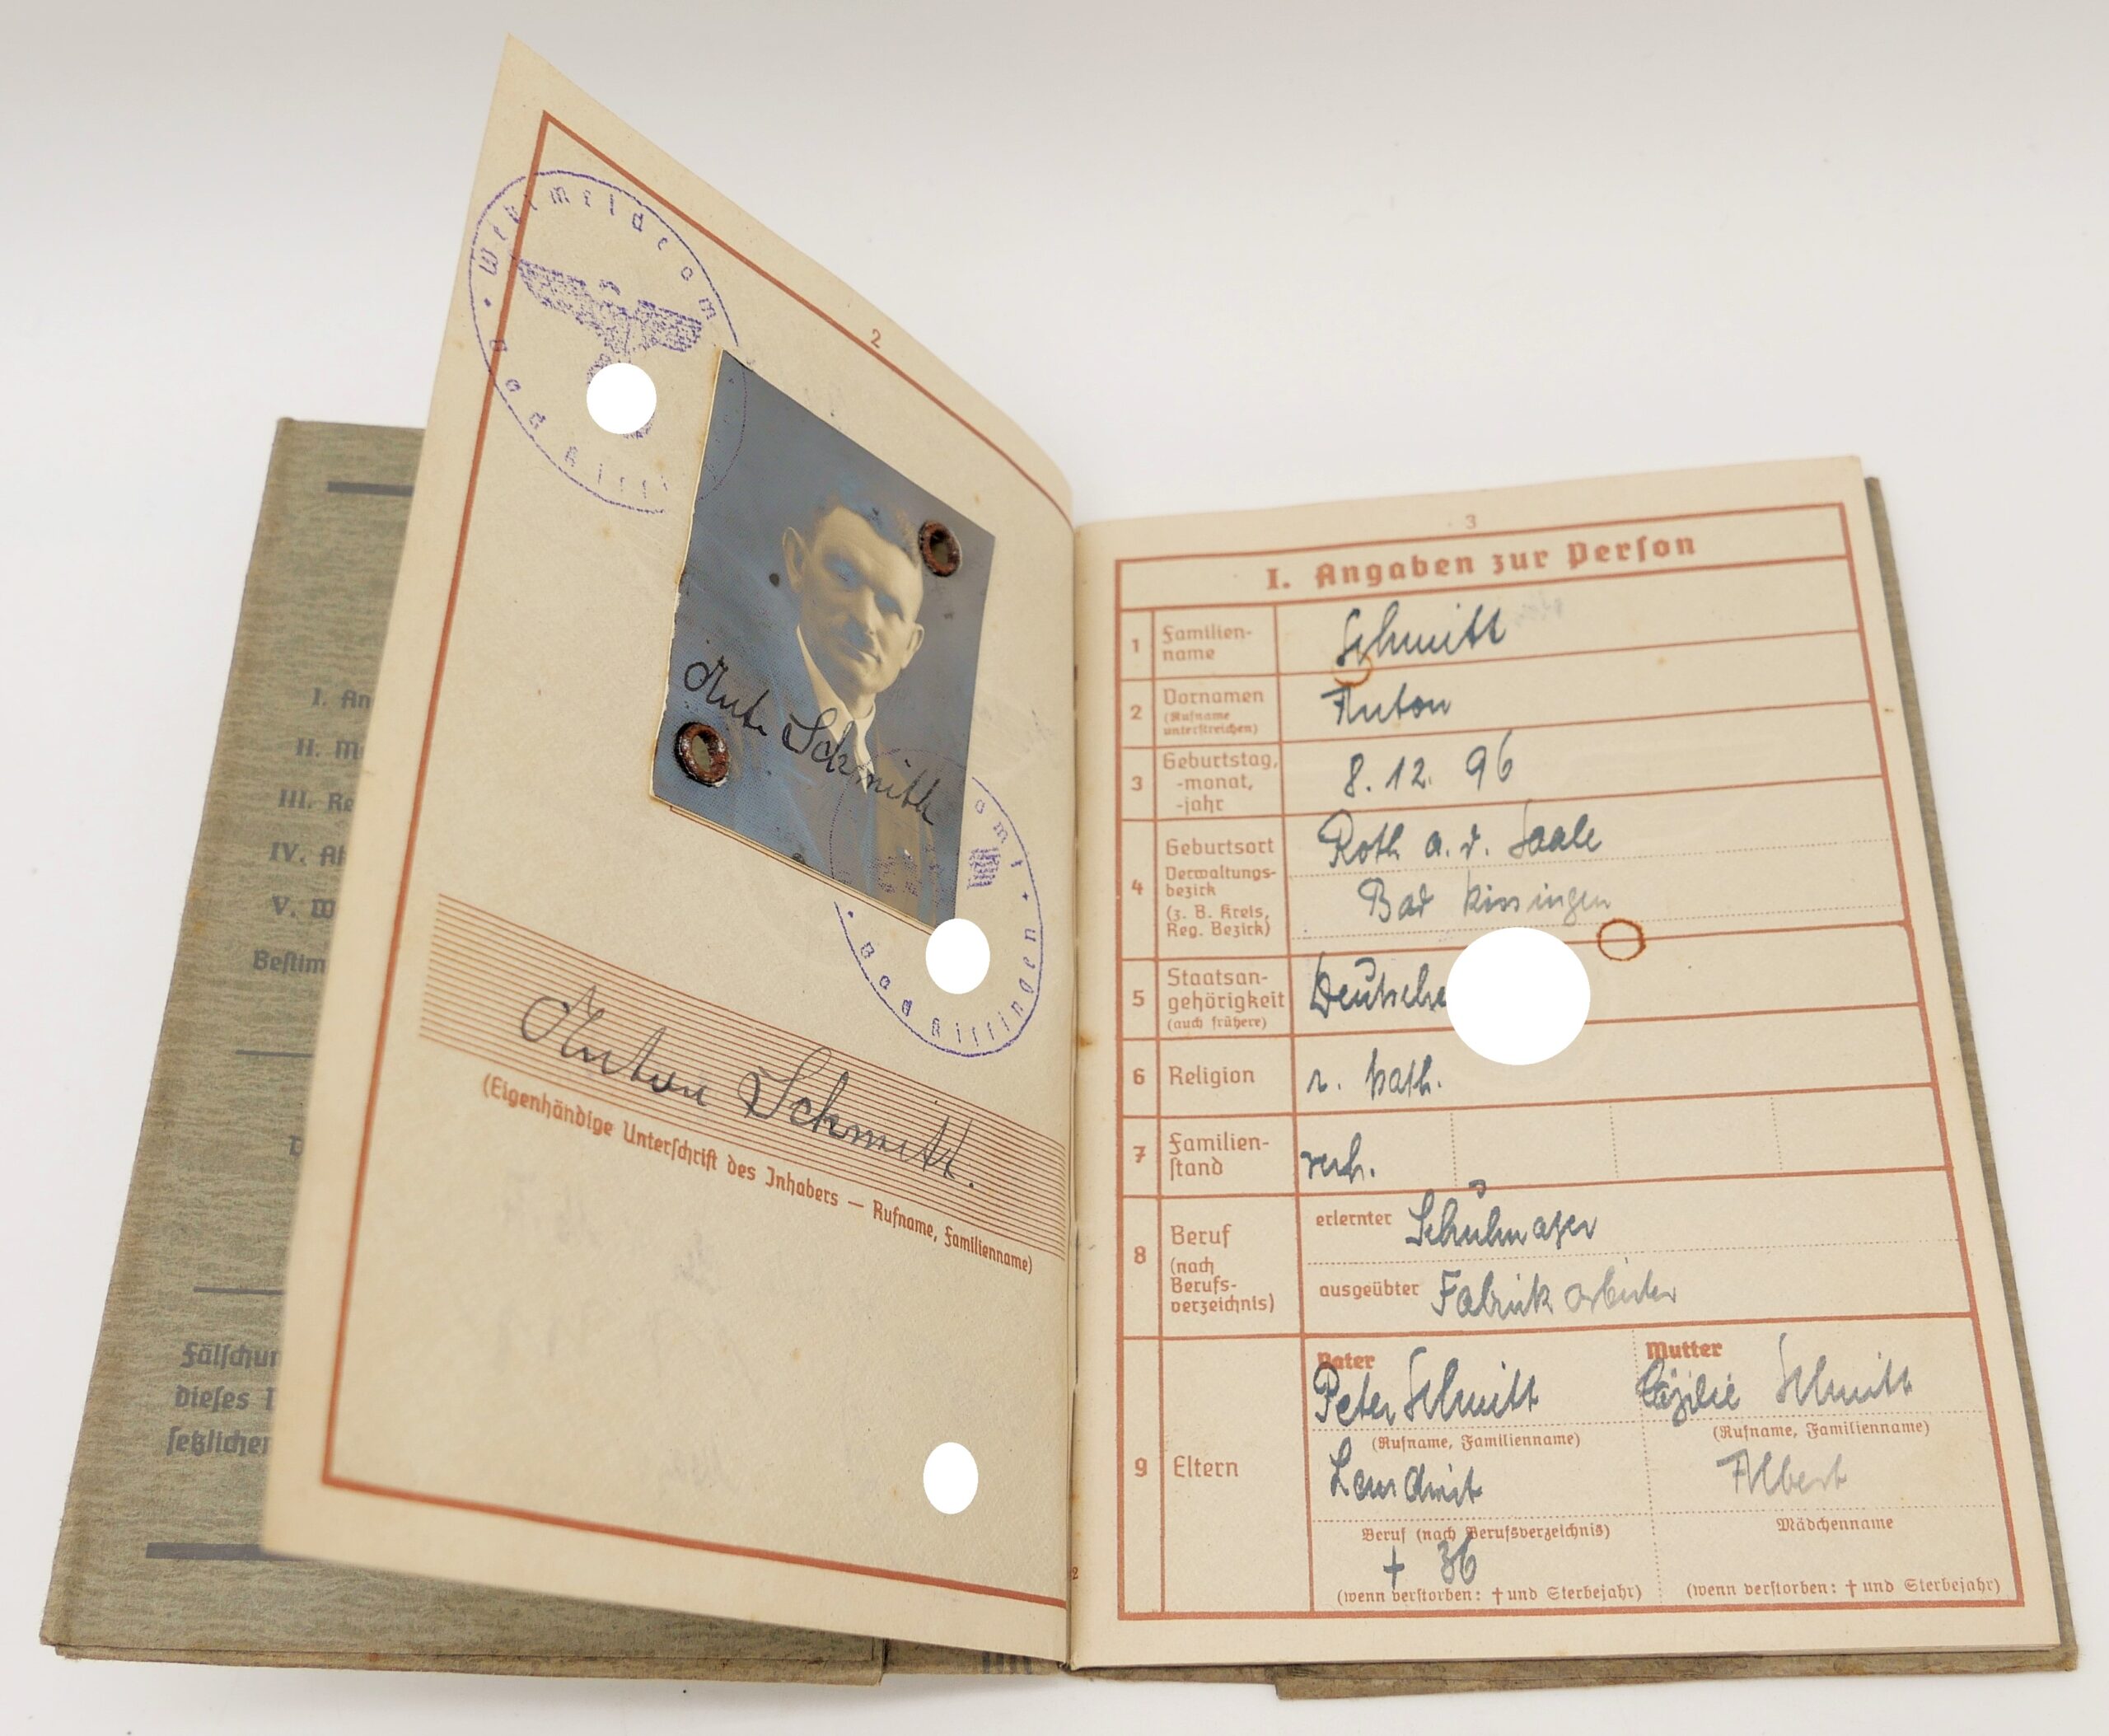 I. An
II. M
III. Re
IV. Ab
V. W
Bestim
Fälschun
dieses
setzlicher
2
Wehrmeldeam
Bad Kiss
Anton Schmitt
Bad Kissingen
Anton Schmitt.
(Eigenhändige Unterschrift des Inhabers — Rufname, Familienname)
3
I. Angaben zur Person
1 Familien-name Schmitt
2 Vornamen (Rufname unterstreichen) Anton
3 Geburtstag, -monat, -jahr 8. 12. 96
4 Geburtsort Roth a. d. Saale
Verwaltungs-bezirk (z. B. Kreis, Reg. Bezirk) Bad Kissingen
5 Staatsan-gehörigkeit (auch frühere) Deutsche
6 Religion r. kath.
7 Familien-stand verh.
8 Beruf (nach Berufs-verzeichnis)
erlernter
ausgeübter Fabrikarbeiter
9 Eltern
Vater Mutter
Peter Schmitt Cäzilie Schmitt
(Rufname, Familienname) (Rufname, Familienname)
Landwirt Albert
Beruf (nach Berufsverzeichnis) Mädchenname
† 36
(wenn verstorben: † und Sterbejahr) (wenn verstorben: † und Sterbejahr)
2